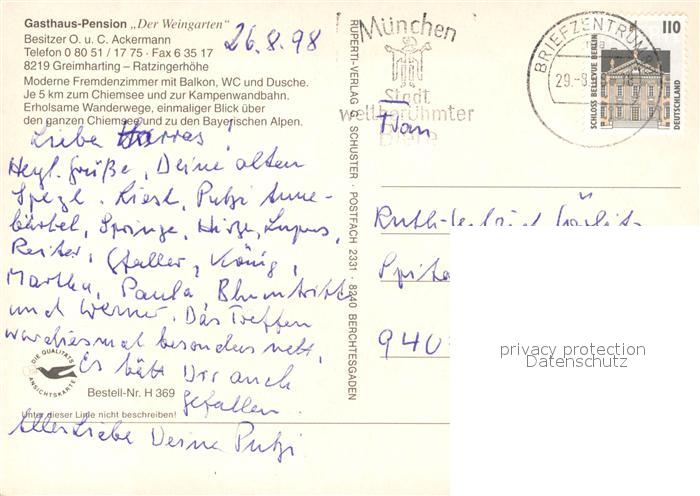 Gasthaus-Pension „Der Weingarten"
Besitzer O. u. C. Ackermann
Telefon 0 80 51 / 17 75 · Fax 6 35 17
8219 Greimharting – Ratzingerhöhe
Moderne Fremdenzimmer mit Balkon, WC und Dusche.
Je 5 km zum Chiemsee und zur Kampenwandbahn.
Erholsame Wanderwege, einmaliger Blick über
den ganzen Chiemsee und zu den Bayerischen Alpen.
26.8.98
Liebe !
Herzl. Grüße, Deine alten
Spezl. Liesl, Putzi Anne-
bärbel, Springe, Hirze, Lupus,
Reiter, Gfaller, König,
Martha, Paula, Blumtritts
und Werner. Das Treffen
war diesmal besonders nett.
Es hätt Dir auch
gefallen.
Alles Liebe Deine Putzi
DIE QUALITÄTS
ANSICHTSKARTE
Bestell-Nr. H 369
Unter dieser Linie nicht beschreiben!
RUPERTI-VERLAG G. SCHUSTER · POSTFACH 2331 · 8240 BERCHTESGADEN
München
Stadt
weltberühmter
BRIEFZENTRUM
29.-8.
SCHLOSS BELLEVUE BERLIN
110
DEUTSCHLAND
Frau
Ruth-
940
privacy protection
Datenschutz